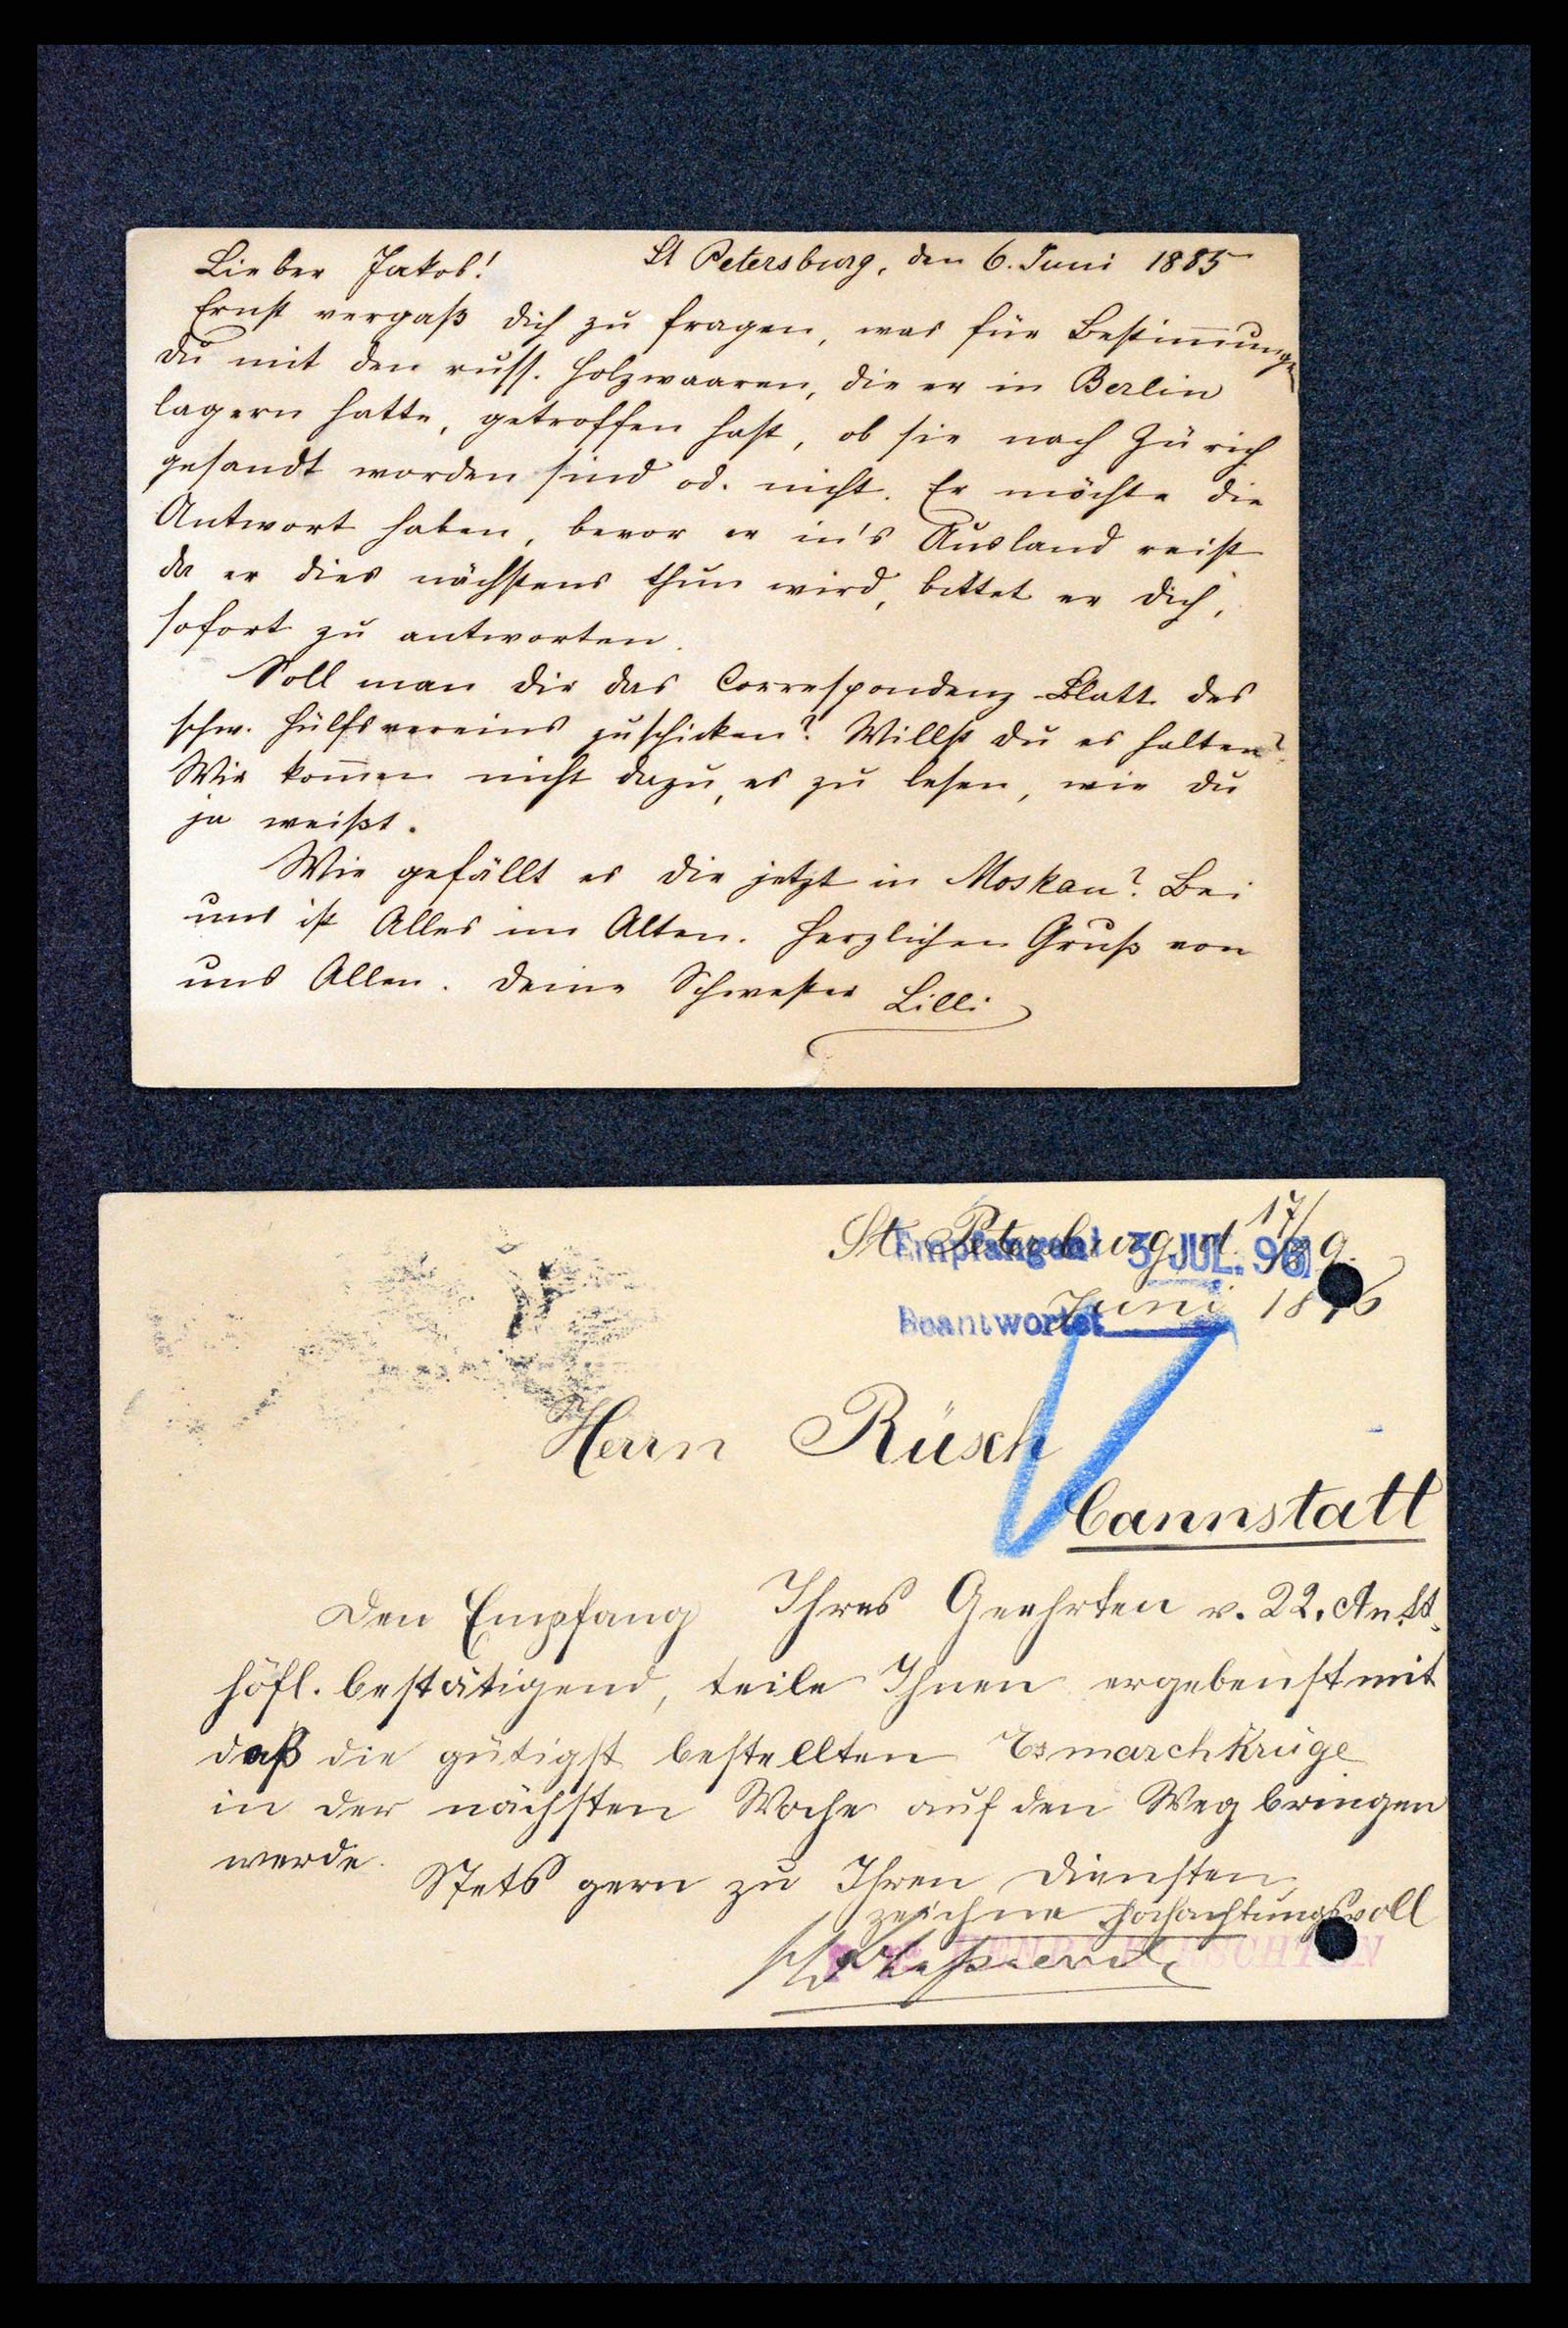 St Petersburg, den 6. Juni 1885
Lieber Jakob!
Ernst vergaß dich zu fragen, was für Bestim̅ungen
du mit den russ. Holzwaaren, die er in Berlin
lagern hatte, getroffen hast, ob sie nach Zürich
gesandt worden sind od. nicht. Er möchte die
Antwort haben, bevor er in's Ausland reist
da er dies nächstens thun wird, bittet er dich,
sofort zu antworten.
Soll man dir das Correspondenz-Blatt des
schw. Hülfsvereins zuschicken? Willst du es halten?
Wir kom̅en nicht dazu, es zu lesen, wie du
ja weißt.
Wie gefällt es dir jetzt in Moskau? Bei
uns ist Alles im Alten. Herzlichen Gruß von
uns Allen. Deine Schwester Lilli
St. Petersburg d 17/29.
Juni 1896
Empfangen 3 JUL. 96
Beantwortet
Herrn Rüsch
Cannstatt
Den Empfang Ihres Geehrten v. 22. An St.
höfl. bestätigend, teile Ihnen ergebenst mit
daß die gütigst bestellten Esmarchkrüge
in der nächsten Woche auf den Weg bringen
werde.
Stets gern zu Ihren Diensten,
zeichne Hochachtungsvoll